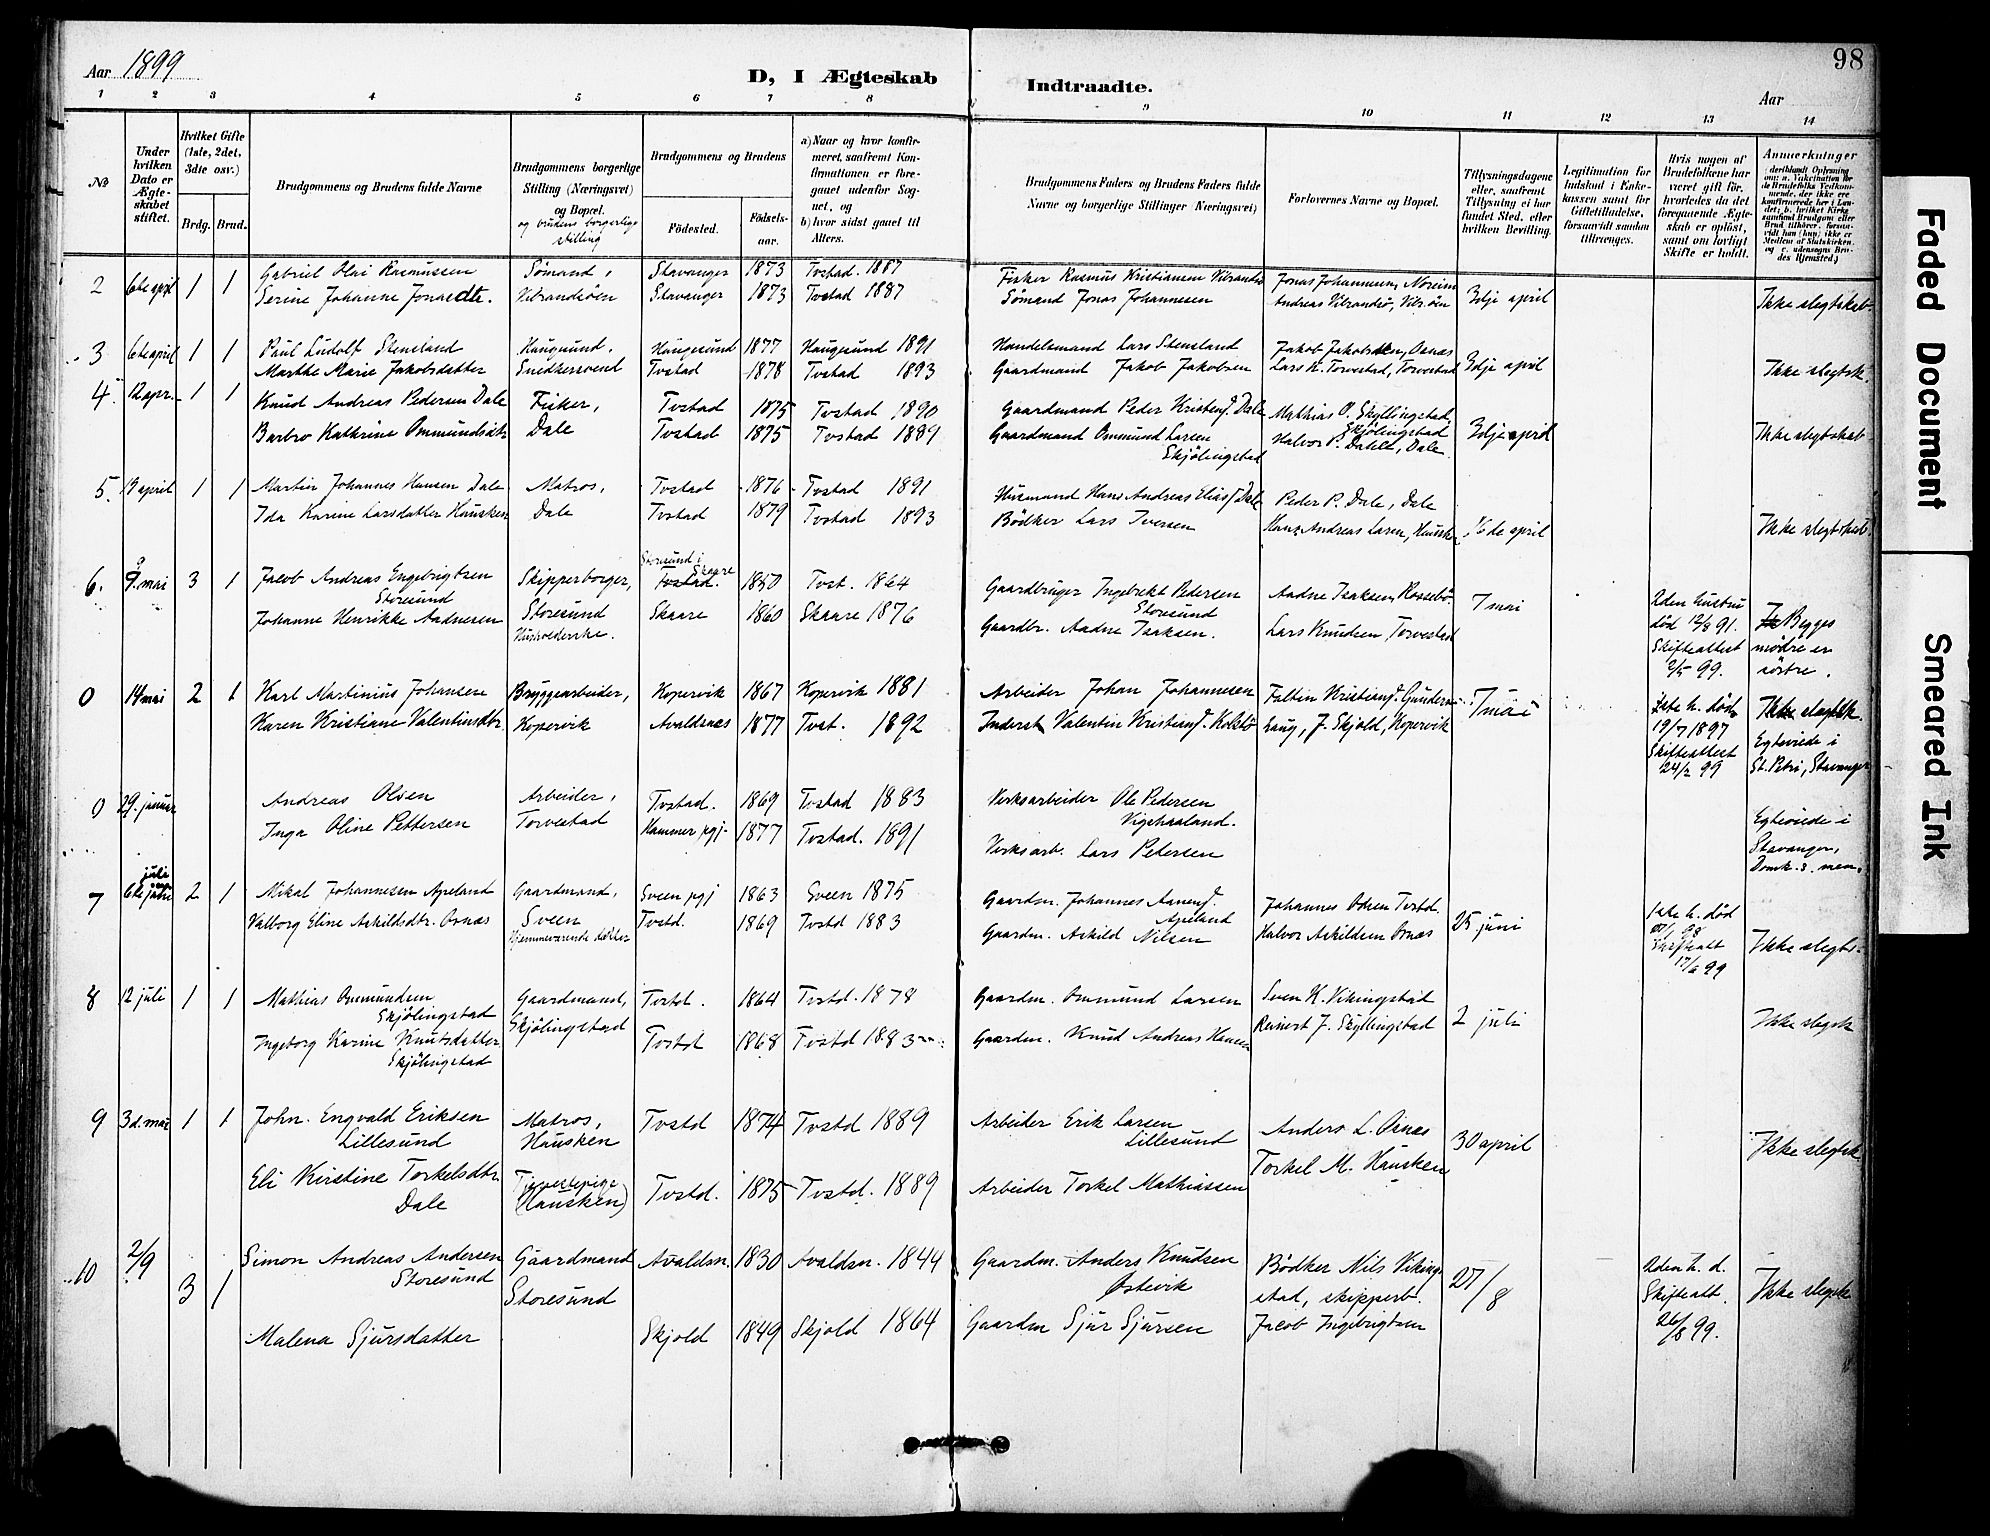 Aar 1899
D, I Ægteskab Indtraadte.
Aar
98
1 2 3 4 5 6 7 8 9 10 11 12 13 14
№
Under hvilken Dato er Ægteskabet stiftet.
Hvilket Gifte (1ste, 2det, 3dte osv.)
Brdg. Brud.
Brudgommens og Brudens fulde Navne
Brudgommens borgerlige Stilling (Næringsvei) og Bopæl.
og brudens borgerlige stilling
Brudgommens og Brudens
Fødested.
Fødselsaar.
a) Naar og hvor konfirmeret, saafremt Konfirmationen er foregaaet udenfor Sognet, og
b) hvor sidst gaaet til Alters.
Brudgommens Faders og Brudens Faders fulde Navne og borgerlige Stillinger (Næringsvei)
Forlovernes Navne og Bopæl.
Tillysningsdagene eller, saafremt Tillysning ei har fundet Sted, efter hvilken Bevilling.
Legitimation for Indskud i Enkekassen samt for Giftetilladelse, forsaavidt saadan tiltrænges.
Hvis nogen af Brudefolkene har været gift før, hvorledes da det foregaaende Ægteskab er opløst, samt om lovligt Skifte er holdt.
Anmærkninger
2 6te april 1 1 Gabriel Olai Rasmussen Sømand, Stavanger 1873 Tvstad. 1887 Fisker Rasmus Kristiansen Vibrandsø Jonas Johannesen, Noreim
Serine Johanne Jonasdtr. Vibrandsøen Stavanger 1873 Tvstad 1887 Sømand Jonas Johannesen Andreas Vibrandsø, Vibr.øen 3dje april Ikke slegtskab.
3 6te april 1 1 Paul Ludolf Stensland Haugesund, Haugesund 1877 Haugesund 1891 Handelsmand Lars Stensland Jakob Jakobsen, Osnæs
Marthe Marie Jakobsdatter Snedkersvend Tvstad 1878 Tvstad 1893 Gaardmand Jakob Jakobsen Lars K. Torvestad, Torvestad 3dje april Ikke slegtsk.
4. 12 apr. 1 1 Knud Andreas Pedersen Dale Fisker, Tvstad 1875 Tvstad 1890 Gaardmand Peder Kristens. Dale Mathias O. Skyllingstad, Skjølingstad
Barbro Kathrine Ommundsdtr Dale Tvstad 1875 Tvstad 1889 Gaardmand Ommund Larsen Skjølingstad Halvor P. Dahle, Dale. 3dje april Ikke slegtskab
5. 19 april 1 1 Martin Johannes Hansen Dale Matros, Tvstad 1876 Tvstad 1891 Husmand Hans Andreas Elias. Dale Peder P. Dale, Dale
Ida Karine Larsdatter Hausken Dale Tvstad 1879 Tvstad 1893 Bødker Lars Iversen Hans Andreas Larsen, Hausken 16de april Ikke slegtskab.
6. 9. mai 3 1 Jacob Andreas Engebrigtsen Storesund Skipperborger, Storesund i Skaare Tvstad. 1850 Tvst. 1864 Gaardbruger Ingebrekt Pedersen Storesund Aadne Isaksen, Rossebø.
Johanne Henrikke Aadnesen Storesund Husholderske. Skaare 1860 Skaare 1876 Gaardbr. Aadne Isaksen. Lars Knudsen, Torvestad 7 mai
2den hustru død 12/8 91. Skifteattest 2/5 99.
Begges mødre er søstre.
0 14 mai 2 1 Karl Martinius Johansen Bryggearbeider, Kopervik 1867 Kopervik 1881 Arbeider Johan Johannesen Faltin Kristians. Gunders-
Karen Kristiane Valentinsdtr. Kopervik Avaldsnæs 1877 Tvst. 1892 Inderst Valentin Kristians. Kolstø haug, J. Skjold, Kopervik 7 mai
1ste h. død 19/7 1897 Skifteattest 24/2 99
Ikke slegtsk. Egteviede i St. Petri, Stavanger
0 29. januar Andreas Olsen Arbeider, Tvstad. 1869 Tvstad 1883 Verksarbeider Ole Pedersen Vigshaaland.
Inga Oline Pettersen Torvestad Hammer pgj. 1877 Tvstad. 1891 Verksarb. Lars Pedersen
Egteviede i Stavanger, Domk.s. men.
7 6te juli 2 1 Mikal Johannesen Apeland Gaardmand, Sveen pgj 1863 Sveen 1875 Gaardm. Johannes Aanens. Apeland Johannes Odsen Tvstd.
Valborg Eline Askildsdtr. Osnæs Sveen Hjemmeværende datter Tvstd. 1869 Tvstd 1883 Gaardm. Askild Nilsen Halvor Askildsen Osnæs 25 juni
1ste h. død 98 Skifteatt 17/6 99
Ikke slegts.
8 12 juli 1 1 Mathias Ommundsen Skjølingstad Gaardmand, Skjølingstad Tvstd. 1864 Tvstd. 1878 Gaardm. Ommund Larsen Sven K. Vikingstad
Ingeborg Karine Knutsdatter Skjølingstad Tvstd 1868 Tvstd 1883 Gaardm. Knud Andreas Hansen Reinert J. Skyllingstad 2 juli Ikke slegsk
9 3d. mai 1 1 John. Engvald Eriksen Lillesund Matros, Hausken Tvstd 1874 Tvstd 1889 Arbeider Erik Larsen Lillesund Anders L. Osnæs
Eli Kirstine Torkelsdtr. Dale Tjenestepige (Hausken) Tvstd. 1875 Tvstd. 1889 Arbeider Torkel Mathiassen Torkel M. Hausken 30 april Ikke slegtsk
10 2/9 3 1 Simon Andreas Andersen Storesund Gaardmand Storesund Avaldsn. 1830 Avaldsn. 1844 Gaardm. Anders Knudsen Østevik Bødker Nils Vikingstad, skipperb.
Malena Sjursdatter Skjold 1849 Skjold 1864 Gaardm Sjur Sjursen Jacob Ingebrigtsen 27/8
2den h. d. Skifteatt. 26/8 99.
Ikke slegsk
Faded Document
Smeared Ink